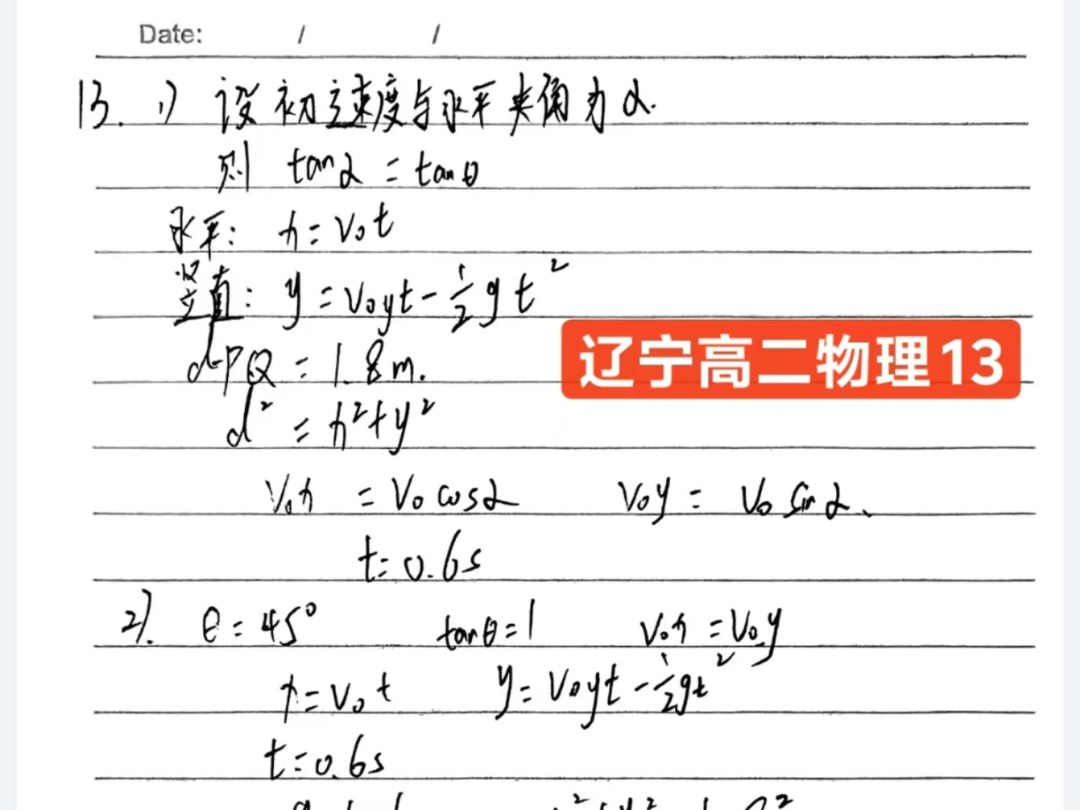 Date: / /
13. 1) 设初速度与水平夹角为α.
则 tanα = tanθ
水平: x = v₀t
竖直: y = v₀yt - ½gt²
d=PQ = 1.8m.
d² = x²+y²
V₀x = V₀cosα V₀y = V₀ sinα、
t=0.6s
2). θ=45° tanθ=1 V₀x = V₀y
x=V₀t y=V₀yt-½gt²
t=0.6s
辽宁高二物理13